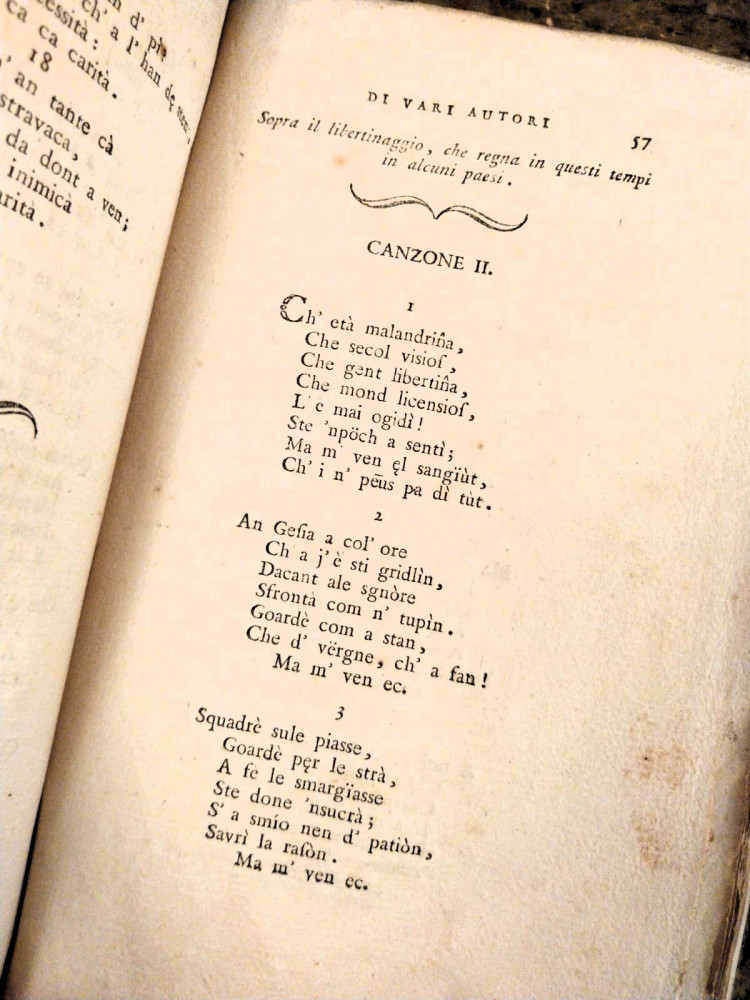 n d' pì,
ch' a l' han dę
cessità:
ca ca carità.
18
' an tante cà
stravaca,
da dont a ven;
inimicà
arità.
DI VARI AUTORI
57
Sopra il libertinaggio, che regna in questi tempi
in alcuni paesi.
CANZONE II.
1
Ch' età malandrin̂a,
Che secol visioſ,
Che gent libertin̂a,
Che mond licensioſ,
L' e mai ogidì!
Ste 'npöch a sentì;
Ma m' ven ęl sangïùt,
Ch' i n' pēus pa dì tùt.
2
An Geſia a col' ore
Ch' a j' è sti gridlìn,
Dacant ale sgnòre
Sfrontà com n' tupìn.
Goardè com a stan,
Che d' vërgne, ch' a fan!
Ma m' ven ec.
3
Squadrè sule piasse,
Goardè pęr le strà,
A fè le smargïasse
Ste done 'nsucrà;
S' a smío nen d' patiòn,
Savrì la raſòn.
Ma m' ven ec.